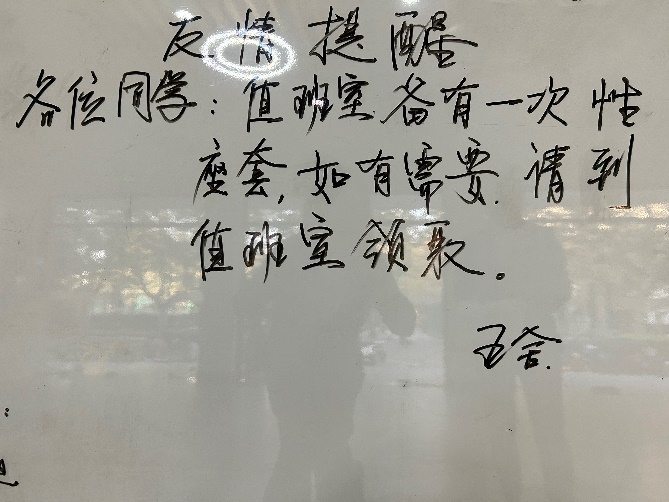 友情提醒
各位同学：值班室备有一次性
座套，如有需要，请到
值班室领取。
五舍.